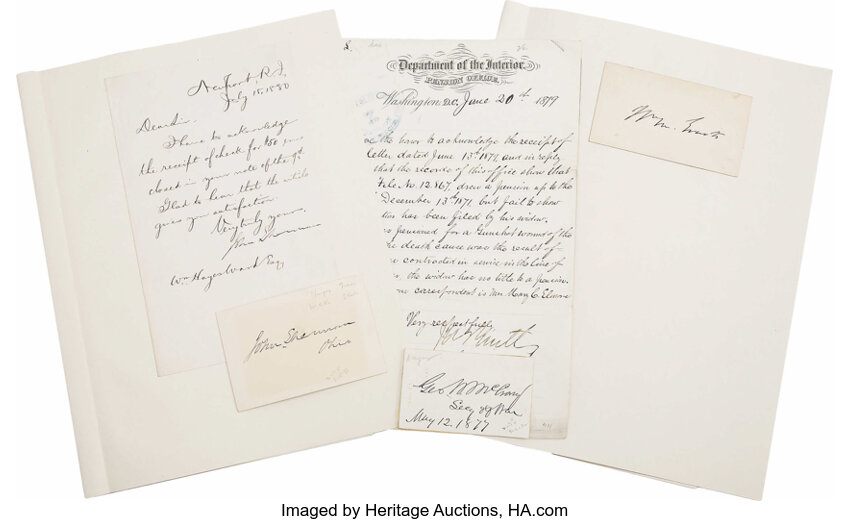 Newport R.I.
July 15, 1890
Dear Sir
I have to acknowledge
the receipt of check for $50 
closed in your note of the 9th
Glad to hear that the article
gives you satisfaction.
Very truly yours,
John Sherman
Wm Hayes Ward Esq
John Sherman
Ohio
Department of the Interior,
PENSION OFFICE,
Washington D.C. June 20th 1879
the honor to acknowledge the receipt of
letter dated June 13th 1879, and in reply
that the records of this office show that
File No. 12.867, drew a pension up to the
December 13th 1871, but fail to show
has been filed by his widow.
pensioned for a Gunshot wound of the
death cause was the result of
contracted in service in the line of
the widow has no title to a pension.
correspondent is Mrs. Mary C.
Very respectfully,
Geo W McCrary
Secy of War
May 12, 1879
Wm M.
Imaged by Heritage Auctions, HA.com